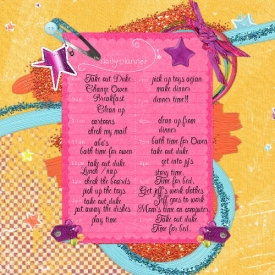 daily planner
Take out Duke
Change Owen
Breakfast
Clean up
cartoons
check my mail
abc's
bath time for owen
take out duke
Lunch / nap
check the boards
pick up the toys
take out duke
put away the dishes
play time
pick up toys again
make dinner
dinner time!!
clean up from
dinner
bath time for Owen
take out duke
get into pjs
story time.
Time for bed.
Get jeff's work clothes
Jeff goes to work
Mom's time on computer
Take out duke
Time for bed..